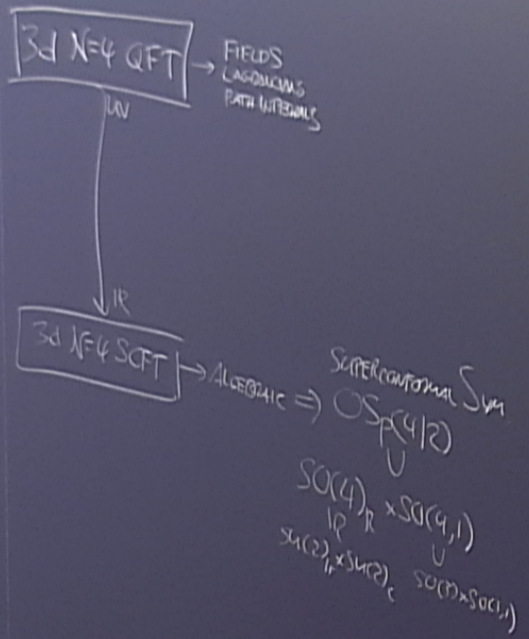 3d N=4 QFT → FIELDS
LAGRANGIANS
PATH INTEGRALS
UV
IR
3d N=4 SCFT → ALGEBRAIC ⇒
SUPERCONFORMAL SYM
OSp(4|2)
∪
SO(4)_R × SO(4,1)
≅ ∪
SU(2)_H × SU(2)_C SO(3)×SO(1,1)